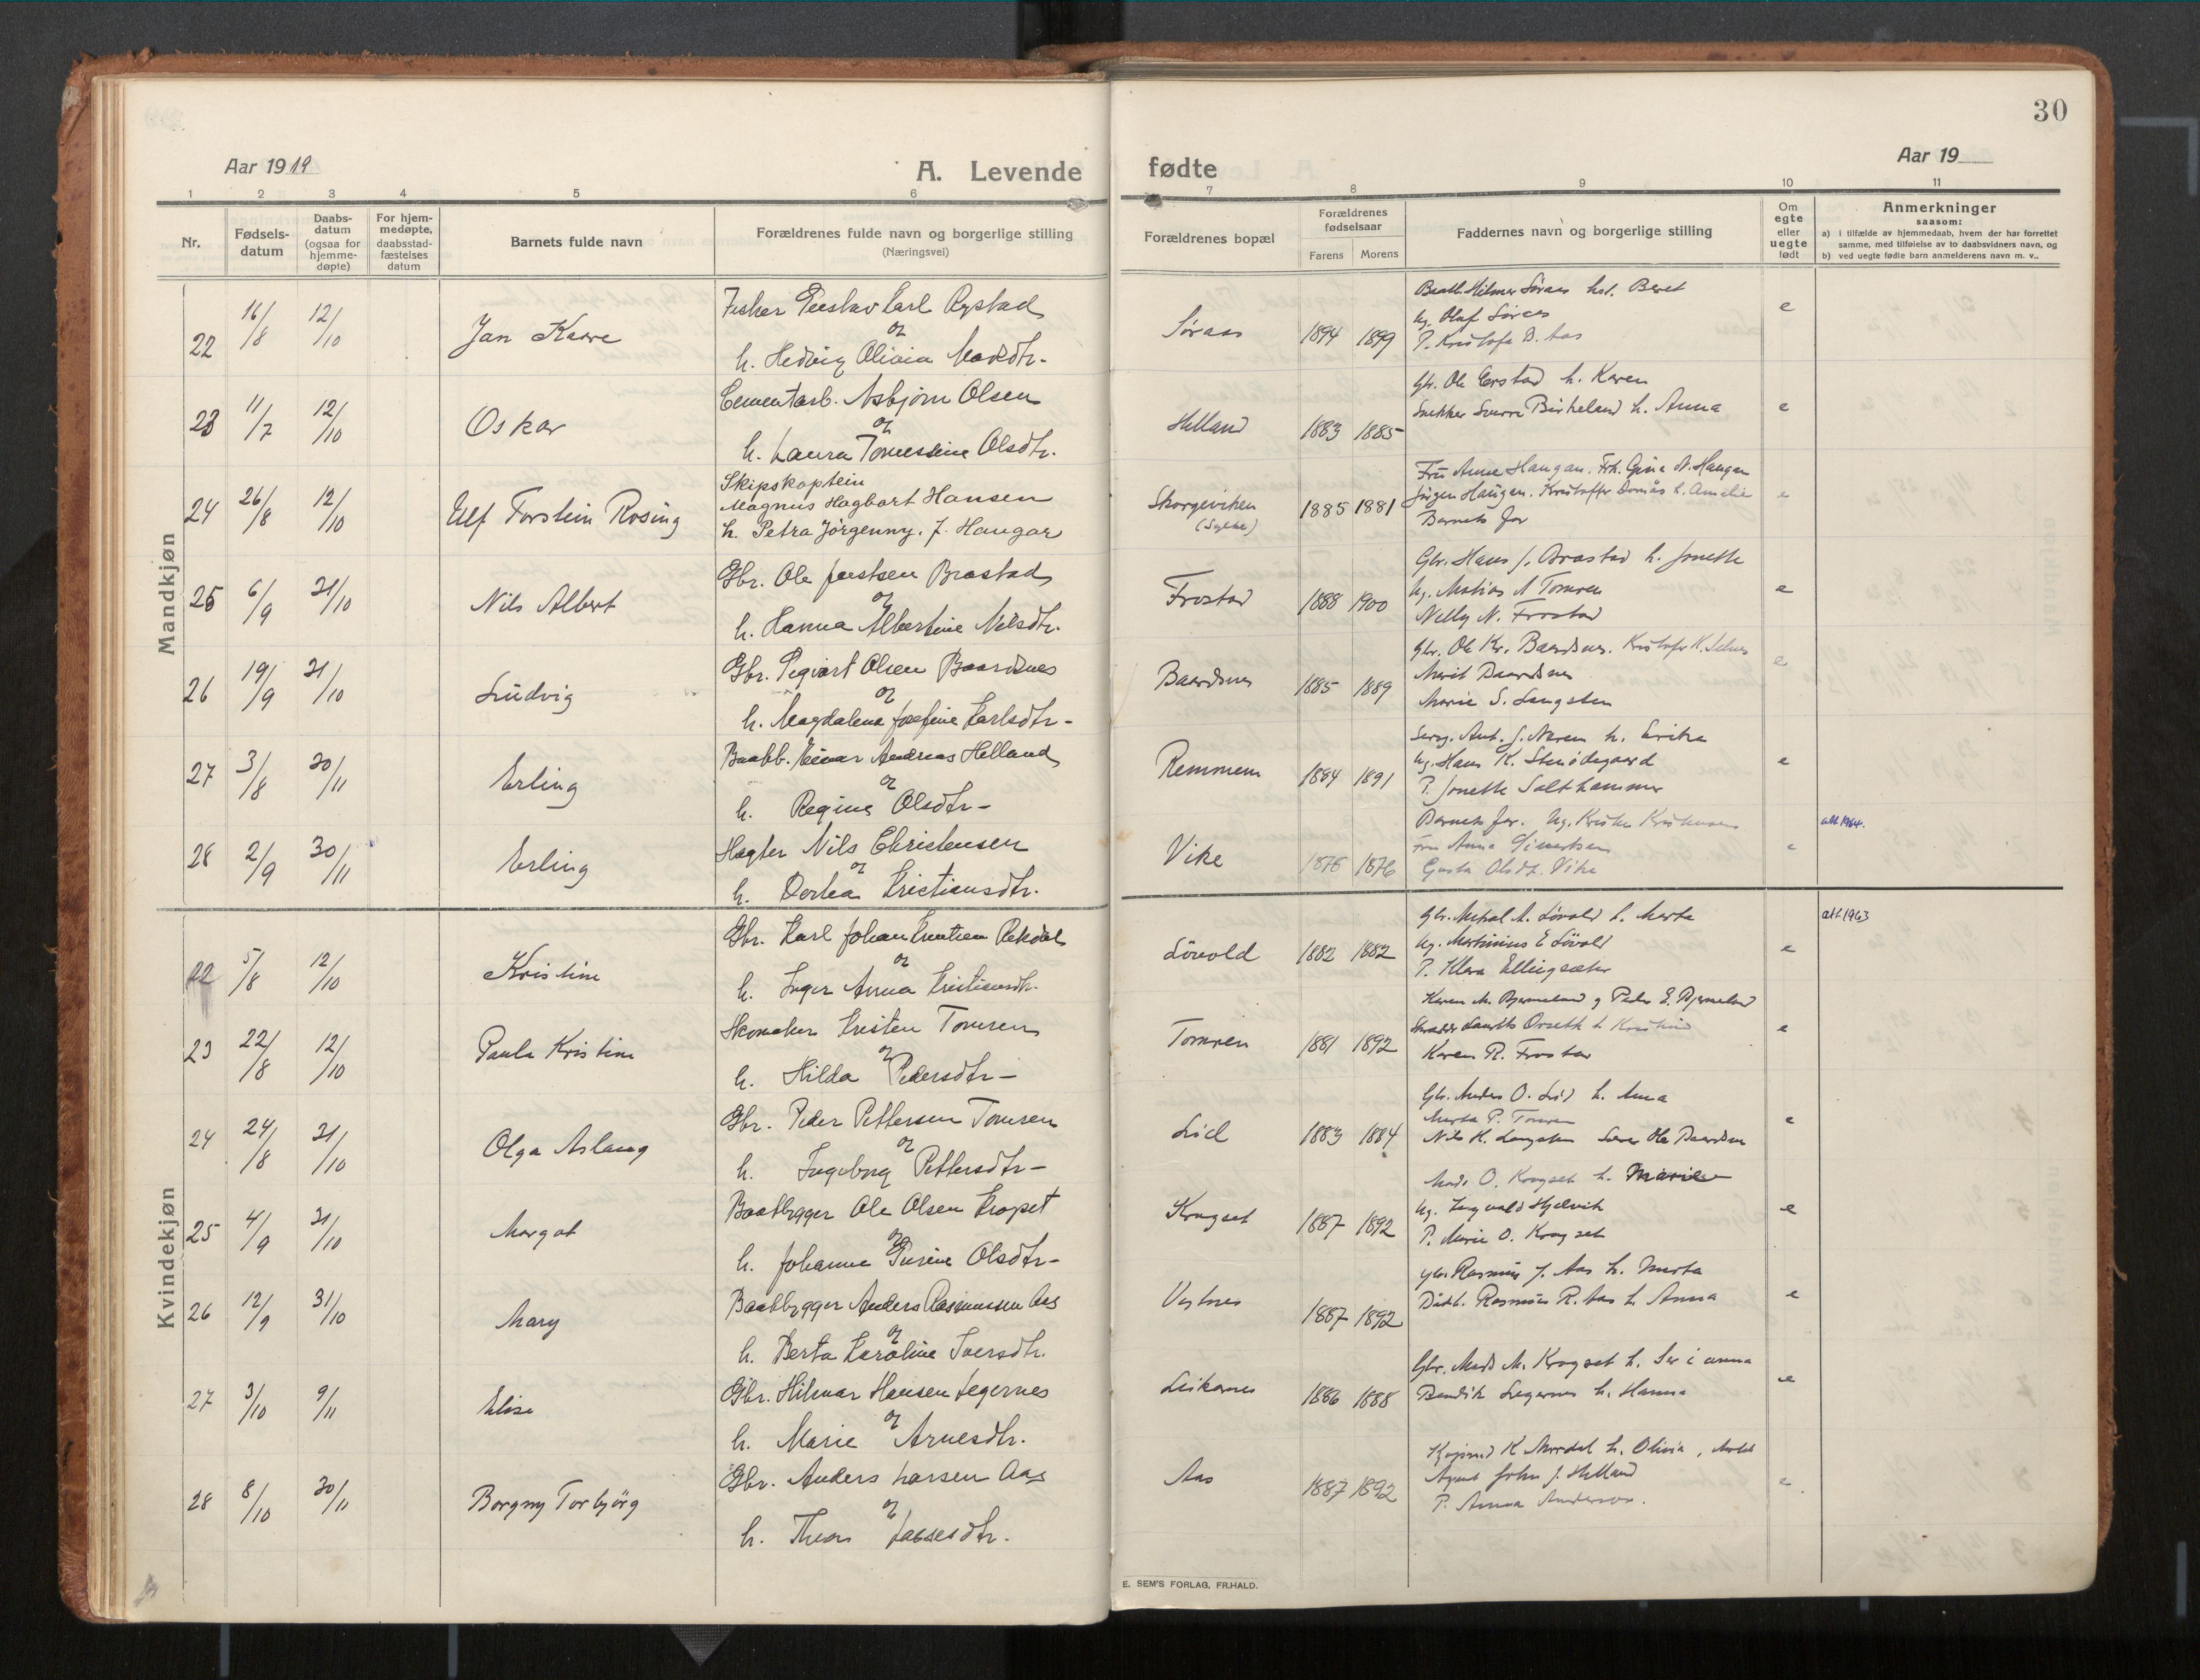 30
Aar 1919
A. Levende
fødte
Aar 19
1 2 3 4 5 6 7 8 9 10 11
Nr.
Fødsels-
datum
Daabs-
datum
(ogsaa for
hjemme-
døpte)
For hjem-
medøpte,
daabsstad-
fæstelses
datum
Barnets fulde navn
Forældrenes fulde navn og borgerlige stilling
(Næringsvei)
Forældrenes bopæl
Forældrenes
fødselsaar
Farens Morens
Faddernes navn og borgerlige stilling
Om
egte
eller
uegte
født
Anmerkninger
saasom:
a) i tilfælde av hjemmedaab, hvem der har forrettet
samme, med tilføielse av to daabsvidners navn, og
b) ved uegte fødte barn anmelderens navn m. v..
Mandkjøn
22 16/8 12/10 Jan Kaare
Fisker Karl Rystad
og
h. Hedvig Olivia
Søraas 1894 1899
Hilmer Søraas Beret
Ug. Olaf Søraas
P. B. Aas
e
23 11/7 12/10 Oskar
Cementarb. Asbjørn Olsen
og
h. Laura Olsdtr.
Helland 1883 1885
Gbr. Ole h. Karen
Snekker Sverre Birkeland h. Anna
e
24 26/8 12/10 Ulf Torstein Rosing
Skipskaptein
Magnus Hagbart Hansen
h. Petra Jörgenny, f. Haugan
Skorgeviken
1885 1881
Fru Anne Haugan. Frk. Gina N. Haugan
Jörgen Haugan. Kristoffer h. Amalie
Barnets far
e
25 6/9 31/10 Nils Albert
Gbr. Ole Brastad
og
h. Hanna Albertine Nilsdtr.
Frostad 1888 1900
Gbr. Hans J. Brastad h. Jonette
Ug. Matias A Tomren
Nelly N. Frostad
e
26 19/9 31/10 Ludvig
Gbr. Sigvart Olsen Baardsnes
og
h. Magdalena Josefine Karlsdtr-
Baardsnes 1885 1889
Gbr. Ole Kr. Baardsnes. Kristofer K.
Marit Baardsnes
Marie S. Langsten
e
27 3/8 30/11 Erling
Baatb. Einar Andreas Helland
og
h. Regine Olsdtr-
Remmem 1884 1891
Ant. J. h.
Ug. Hans K. Stenødegaard
P. Jonette Salthammer
e
28 2/9 30/11 Erling
Nils Christensen
og
h. Dorthea Kristiansdtr.
Vike 1878 1876
Barnets far. Ug.
Fru Anna
Gusta Olsdt. Vike
e
att 1964.
Kvindekjøn
22 5/8 12/10 Kristine
Gbr. Karl Johan Knutsen Rekdal
og
h. Inger Anna Kristiansdtr.
Løvold 1882 1882
Gbr. A. Løvold h. Marta
Ug. Martinius E Løvold
P. Klara Ellingsæter
e
att 1963
23 22/8 12/10 Paula Kristine
Skomaker Kristen Tomren
og
h. Hilda Pedersdtr-
Tomren 1881 1892
Karen M. Bjermeland g Peder E. Bjermeland
Skrædder Laurits Orseth h
Karen R. Frostad
e
24 24/8 31/10 Olga Aslaug
Gbr. Peder Pettersen Tomren
og
h. Ingeborg Pettersdtr-
Lid 1883 1884
Gbr. Anders O. Lid h. Anna
Marta P. Tomren
Nils H. Langsten Ole Baardsen
e
25 4/9 31/10 Margot
Baatbygger Ole Olsen Kragset
og
h. Johanne Olsdtr-
Kragset 1887 1892
Mads O. Kragset h. Marie
Ug. Ingvald Hjelvik
P. Marie O. Kragset
e
26 12/9 31/10 Mary
Baatbygger Anders Rasmussen Aas
og
h. Berta Karoline Iversdtr.
Vestnes 1887 1892
Gbr. Rasmus J. Aas h. Marta
Rasmus R. Aas h Anna
e
27 3/10 9/11 Elise
Gbr. Hilmar Hansen Legernes
og
h. Marie Arnesdtr.
Leikarnes 1886 1888
Gbr. Mads M. Kragset h.
Bendik Legernes h. Hanna
e
28 8/10 30/11 Borgny Torbjörg
Gbr. Anders Larsen Aas
og
h. Thea
Aas 1887 1892
K h. Olivia,
Agent John J. Helland
P. Anna Anderson.
e
E. SEM'S FORLAG, FR.HALD.